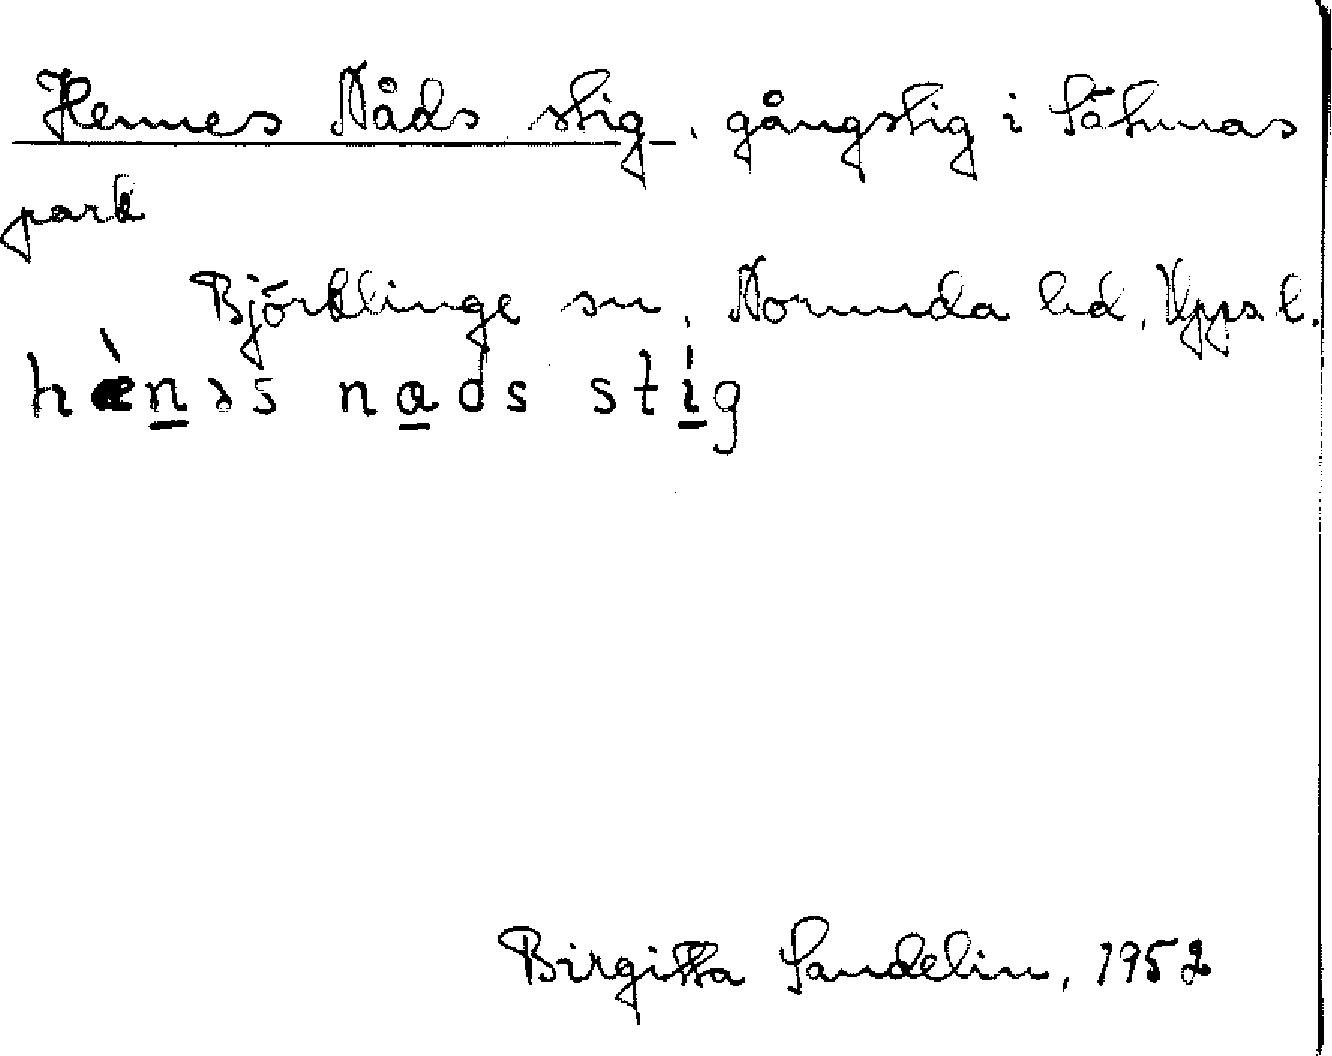 Hennes Nåds stig, gångstig i Sätunas
park
Björklinge sn, Norunda hd, Upps. l.
hæ̀nəs nads stig
Birgitta Sandelin, 1952